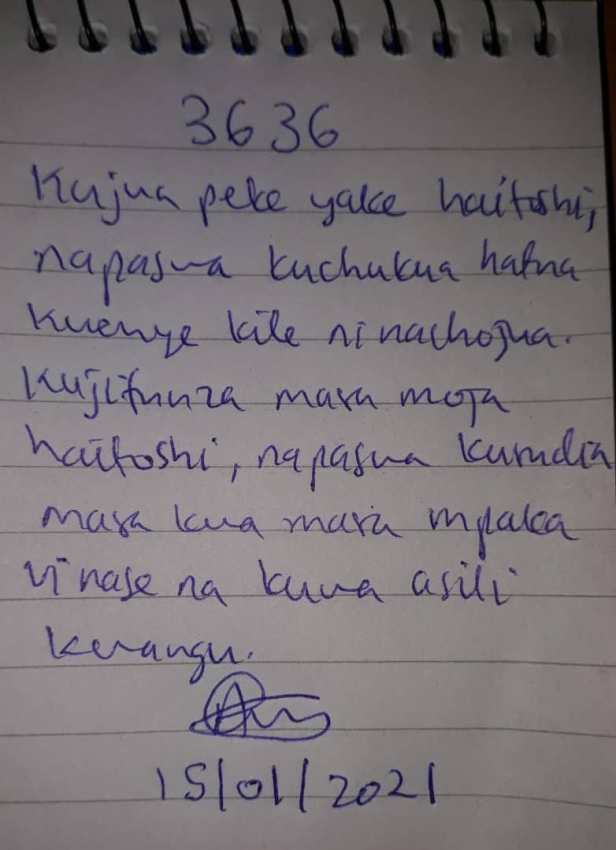 3636
Kujua peke yake haitoshi,
napaswa kuchukua hatua
kwenye kile ninachojua.
Kujifunza mara moja
haitoshi, napaswa kurudia
mara kwa mara mpaka
vinase na kuwa asili
kwangu.
15/01/2021